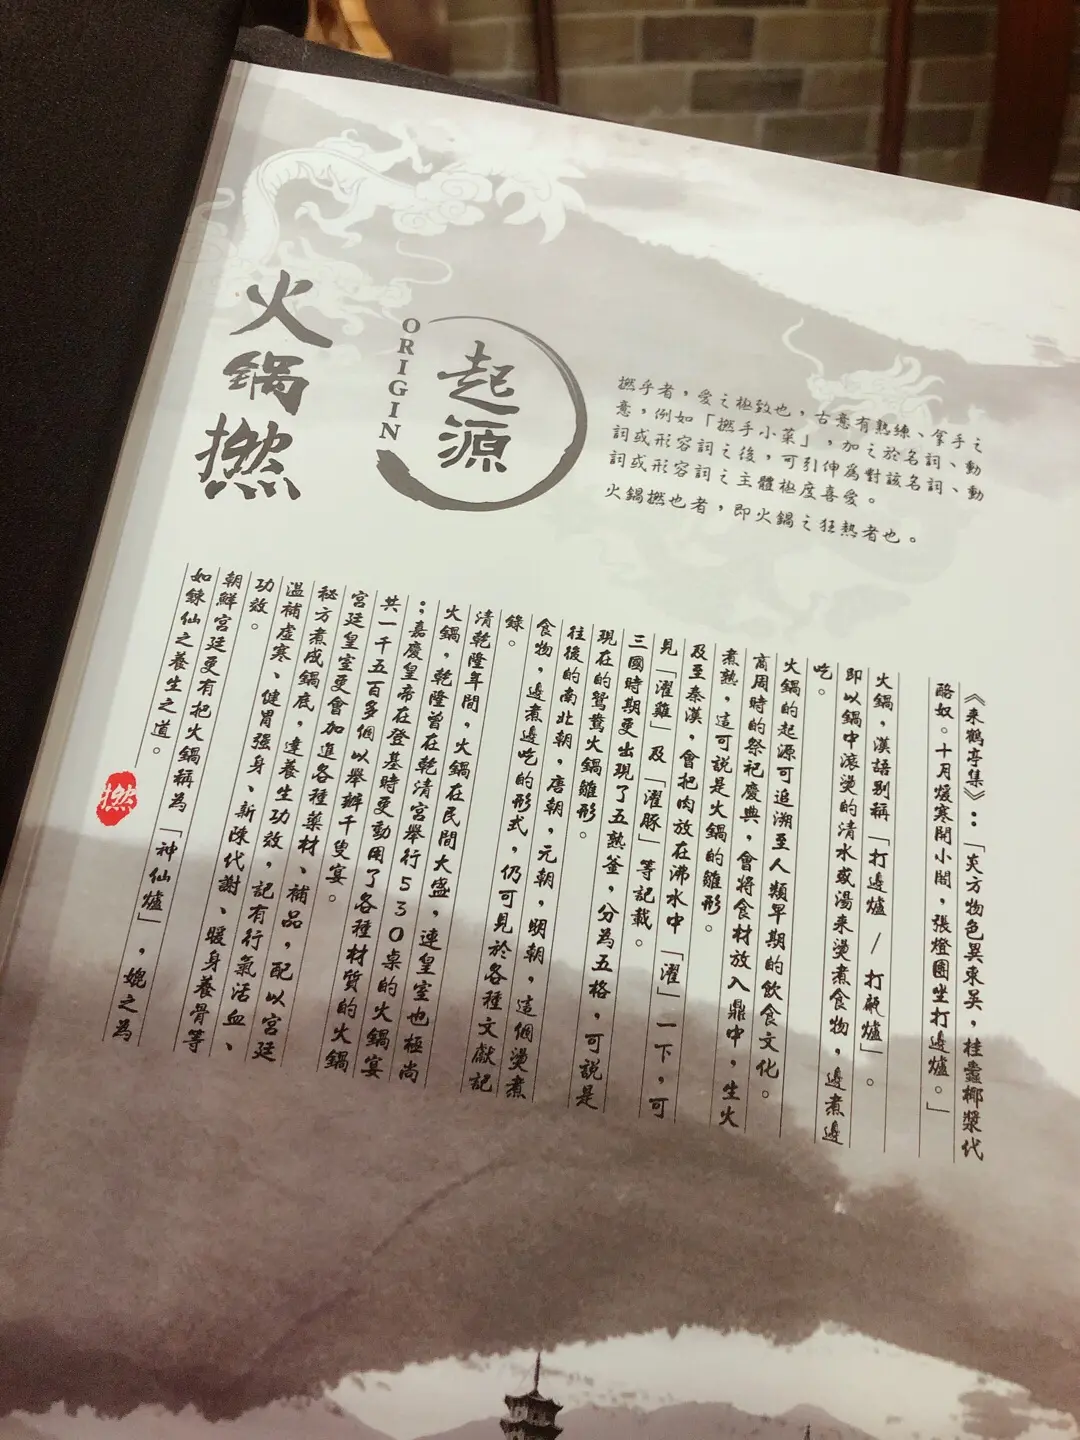 火鍋撚
起源
ORIGIN
撚乎者，愛之極致也，古意有熟練、拿手之
意，例如「撚手小菜」，加之於名詞、動
詞或形容詞之後，可引伸為對該名詞、動
詞或形容詞之主體極度喜愛。
火鍋撚也者，即火鍋之狂熱者也。
《來鶴亭集》：「炎方物色異東吳，桂蠹椰漿代
酪奴。十月煖寒開小閤，張燈圍坐打邊爐。」
火鍋，漢語別稱「打邊爐 / 打甂爐」。
即以鍋中滾燙的清水或湯來燙煮食物，邊煮邊
吃。
火鍋的起源可追溯至人類早期的飲食文化。
商周時的祭祀慶典，會將食材放入鼎中，生火
煮熟，這可說是火鍋的雛形。
及至秦漢，會把肉放在沸水中「濯」一下，可
見「濯雞」及「濯豚」等記載。
三國時期更出現了五熟釜，分為五格，可說是
現在的鴛鴦火鍋雛形。
往後的南北朝，唐朝，元朝，明朝，這個燙煮
食物，邊煮邊吃的形式，仍可見於各種文獻記
錄。
清乾隆年間，火鍋在民間大盛，連皇室也極尚
火鍋，乾隆曾在乾清宮舉行530桌的火鍋宴
；嘉慶皇帝在登基時更動用了各種材質的火鍋
共一千五百多個以舉辦千叟宴。
宮廷皇室更會加進各種藥材、補品，配以宮廷
秘方煮成鍋底，達養生功效，記有行氣活血、
溫補虛寒、健胃強身、新陳代謝、暖身養骨等
功效。
朝鮮宮廷更有把火鍋稱為「神仙爐」，媲之為
如鍊仙之養生之道。
撚